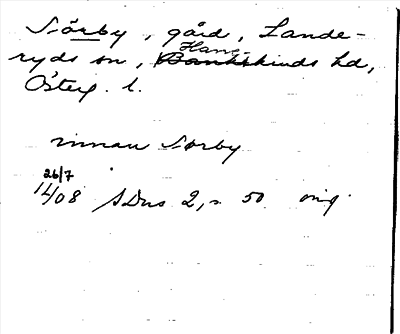 Sörby, gård, Lande-
ryds sn, Hane-
Bankekinds hd,
Österg. l.
innan Sörby
26/7
14/08 SDns 2, s 50 orig.